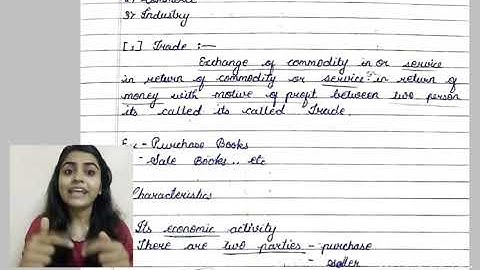 3) Industry
[1] Trade :—
Exchange of commodity in or service
in return of commodity or service in return of
money with motive of profit between two person
its called its called Trade.
Ex - Purchase Books
- Sale Books.. etc
Characteristics
Its economic activity
There are two parties - purchase
- seller